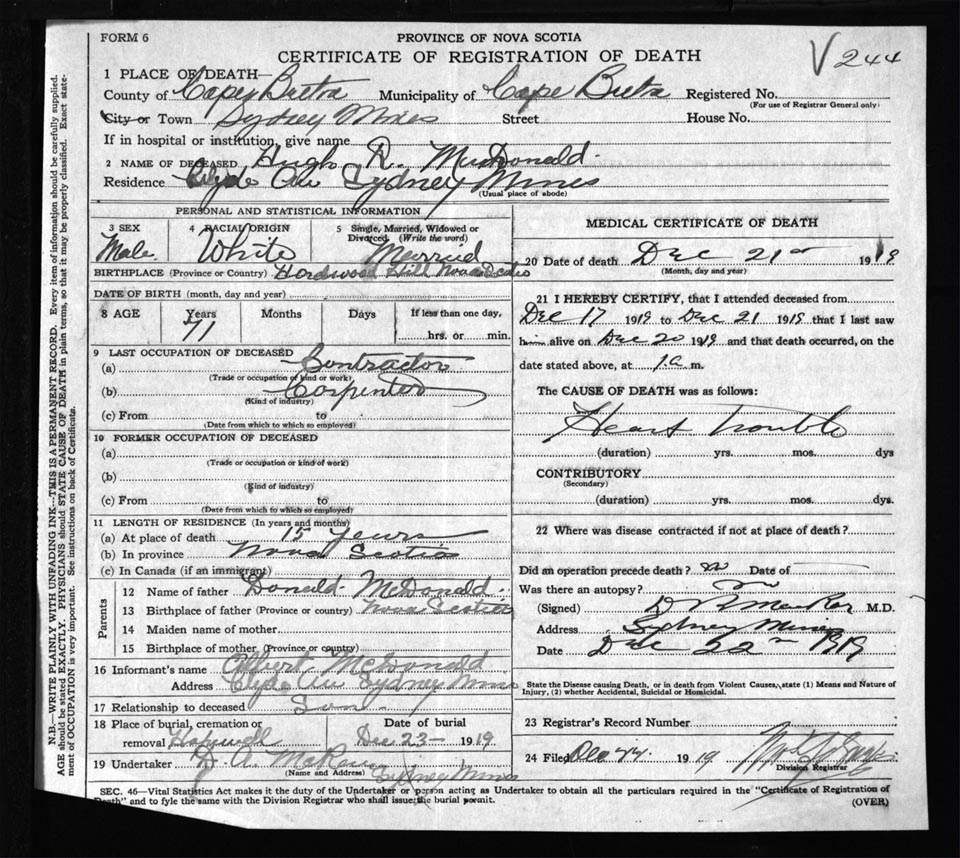 FORM 6
PROVINCE OF NOVA SCOTIA
CERTIFICATE OF REGISTRATION OF DEATH
V 244
1 PLACE OF DEATH—
County of Cape Breton Municipality of Cape Breton Registered No.
(For use of Registrar General only)
City or Town Sydney Mines Street House No.
If in hospital or institution, give name
2 NAME OF DECEASED Hugh R. McDonald.
Residence Clyde Ave Sydney Mines
(Usual place of abode)
PERSONAL AND STATISTICAL INFORMATION
3 SEX 4 RACIAL ORIGIN 5 Single, Married, Widowed or Divorced (Write the word)
Male White Married
BIRTHPLACE (Province or Country) Hardwood Hill Nova Scotia
DATE OF BIRTH (month, day and year)
8 AGE Years Months Days If less than one day,
71 hrs. or min.
9 LAST OCCUPATION OF DECEASED
(a) Contractor
(Trade or occupation of kind or work)
(b) Carpenter
(Kind of industry)
(c) From to
(Date from which to which so employed)
10 FORMER OCCUPATION OF DECEASED
(a)
(Trade or occupation or kind of work)
(b)
(Kind of industry)
(c) From to
(Date from which to which so employed)
11 LENGTH OF RESIDENCE (In years and months)
(a) At place of death 15 Years
(b) In province Nova Scotia
(c) In Canada (if an immigrant)
Parents
12 Name of father Donald McDonald.
13 Birthplace of father (Province or country) Nova Scotia
14 Maiden name of mother
15 Birthplace of mother (Province or country)
16 Informant's name Albert McDonald
Address Clyde Ave Sydney Mines
17 Relationship to deceased Son.
18 Place of burial, cremation or Date of burial
removal Hopewell Dec 23– 1919
19 Undertaker D. A.
(Name and Address) Sydney Mines
MEDICAL CERTIFICATE OF DEATH
20 Date of death Dec 21st 1919
(Month, day and year)
21 I HEREBY CERTIFY, that I attended deceased from
Dec 17 1919 to Dec 21 1919 that I last saw
him alive on Dec 20 1919 and that death occurred, on the
date stated above, at 1 a m.
The CAUSE OF DEATH was as follows:
Heart Trouble
(duration) yrs. mos. dys
CONTRIBUTORY
(Secondary)
(duration) yrs. mos. dys.
22 Where was disease contracted if not at place of death?
Did an operation precede death? no Date of
Was there an autopsy? no
(Signed) M.D.
Address Sydney Mines
Date Dec 22nd 1919
State the Disease causing Death, or in death from Violent Causes, state (1) Means and Nature of
Injury, (2) whether Accidental, Suicidal or Homicidal.
23 Registrar's Record Number
24 Filed Dec 24. 1919
Division Registrar
SEC. 46—Vital Statistics Act makes it the duty of the Undertaker or person acting as Undertaker to obtain all the particulars required in the "Certificate of Registration of
Death" and to fyle the same with the Division Registrar who shall issue the burial permit.
(OVER)
N.B.—WRITE PLAINLY WITH UNFADING INK—THIS IS A PERMANENT RECORD. Every item of information should be carefully supplied.
AGE should be stated EXACTLY. PHYSICIANS should STATE CAUSE OF DEATH in plain terms, so that it may be properly classified. Exact state-
ment of OCCUPATION is very important. See instructions on back of Certificate.